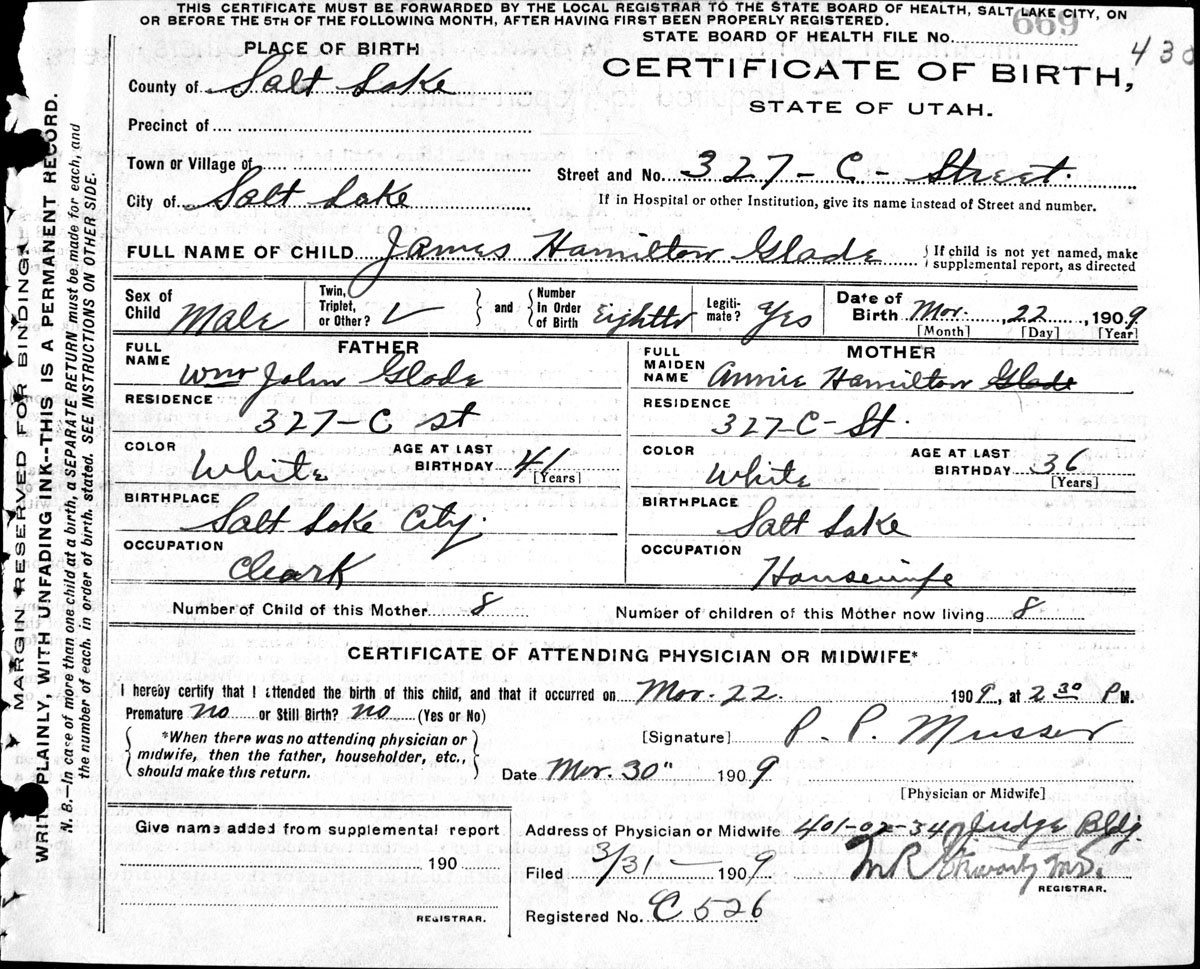 THIS CERTIFICATE MUST BE FORWARDED BY THE LOCAL REGISTRAR TO THE STATE BOARD OF HEALTH, SALT LAKE CITY, ON
OR BEFORE THE 5TH OF THE FOLLOWING MONTH, AFTER HAVING FIRST BEEN PROPERLY REGISTERED.
STATE BOARD OF HEALTH FILE No. 669
438
PLACE OF BIRTH
CERTIFICATE OF BIRTH,
STATE OF UTAH.
County of Salt Lake
Precinct of
Town or Village of
Street and No. 327 - C - Street
City of Salt Lake
If in Hospital or other Institution, give its name instead of Street and number.
FULL NAME OF CHILD James Hamilton Glade
{ If child is not yet named, make
supplemental report, as directed
Sex of Child Male
Twin, Triplet, or Other?
and
Number In Order of Birth Eighth
Legiti-mate? Yes
Date of Birth Mar. 22, 1909
[Month] [Day] [Year]
FATHER
FULL NAME Wm John Glade
RESIDENCE 327-C St
COLOR White
AGE AT LAST BIRTHDAY 41
[Years]
BIRTHPLACE Salt Lake City.
OCCUPATION Cleark
MOTHER
FULL MAIDEN NAME Annie Hamilton Glade
RESIDENCE 327-C-St.
COLOR White
AGE AT LAST BIRTHDAY 36
[Years]
BIRTHPLACE Salt Lake
OCCUPATION Housewife
Number of Child of this Mother 8
Number of children of this Mother now living 8
CERTIFICATE OF ATTENDING PHYSICIAN OR MIDWIFE*
I hereby certify that I attended the birth of this child, and that it occurred on Mar. 22 1909, at 2 30 P M.
Premature no or Still Birth? no (Yes or No)
*When there was no attending physician or
midwife, then the father, householder, etc.,
should make this return.
[Signature] P. P. Musser
Date Mar. 30" 1909
[Physician or Midwife]
Give name added from supplemental report
190
REGISTRAR.
Address of Physician or Midwife 401-02-34 Judge Bldg.
Filed 3/31 - 1909
REGISTRAR.
Registered No. C 526
MARGIN RESERVED FOR BINDING.
WRITE PLAINLY, WITH UNFADING INK--THIS IS A PERMANENT RECORD.
N. B.—In case of more than one child at a birth, a SEPARATE RETURN must be made for each, and
the number of each, in order of birth, stated. SEE INSTRUCTIONS ON OTHER SIDE.